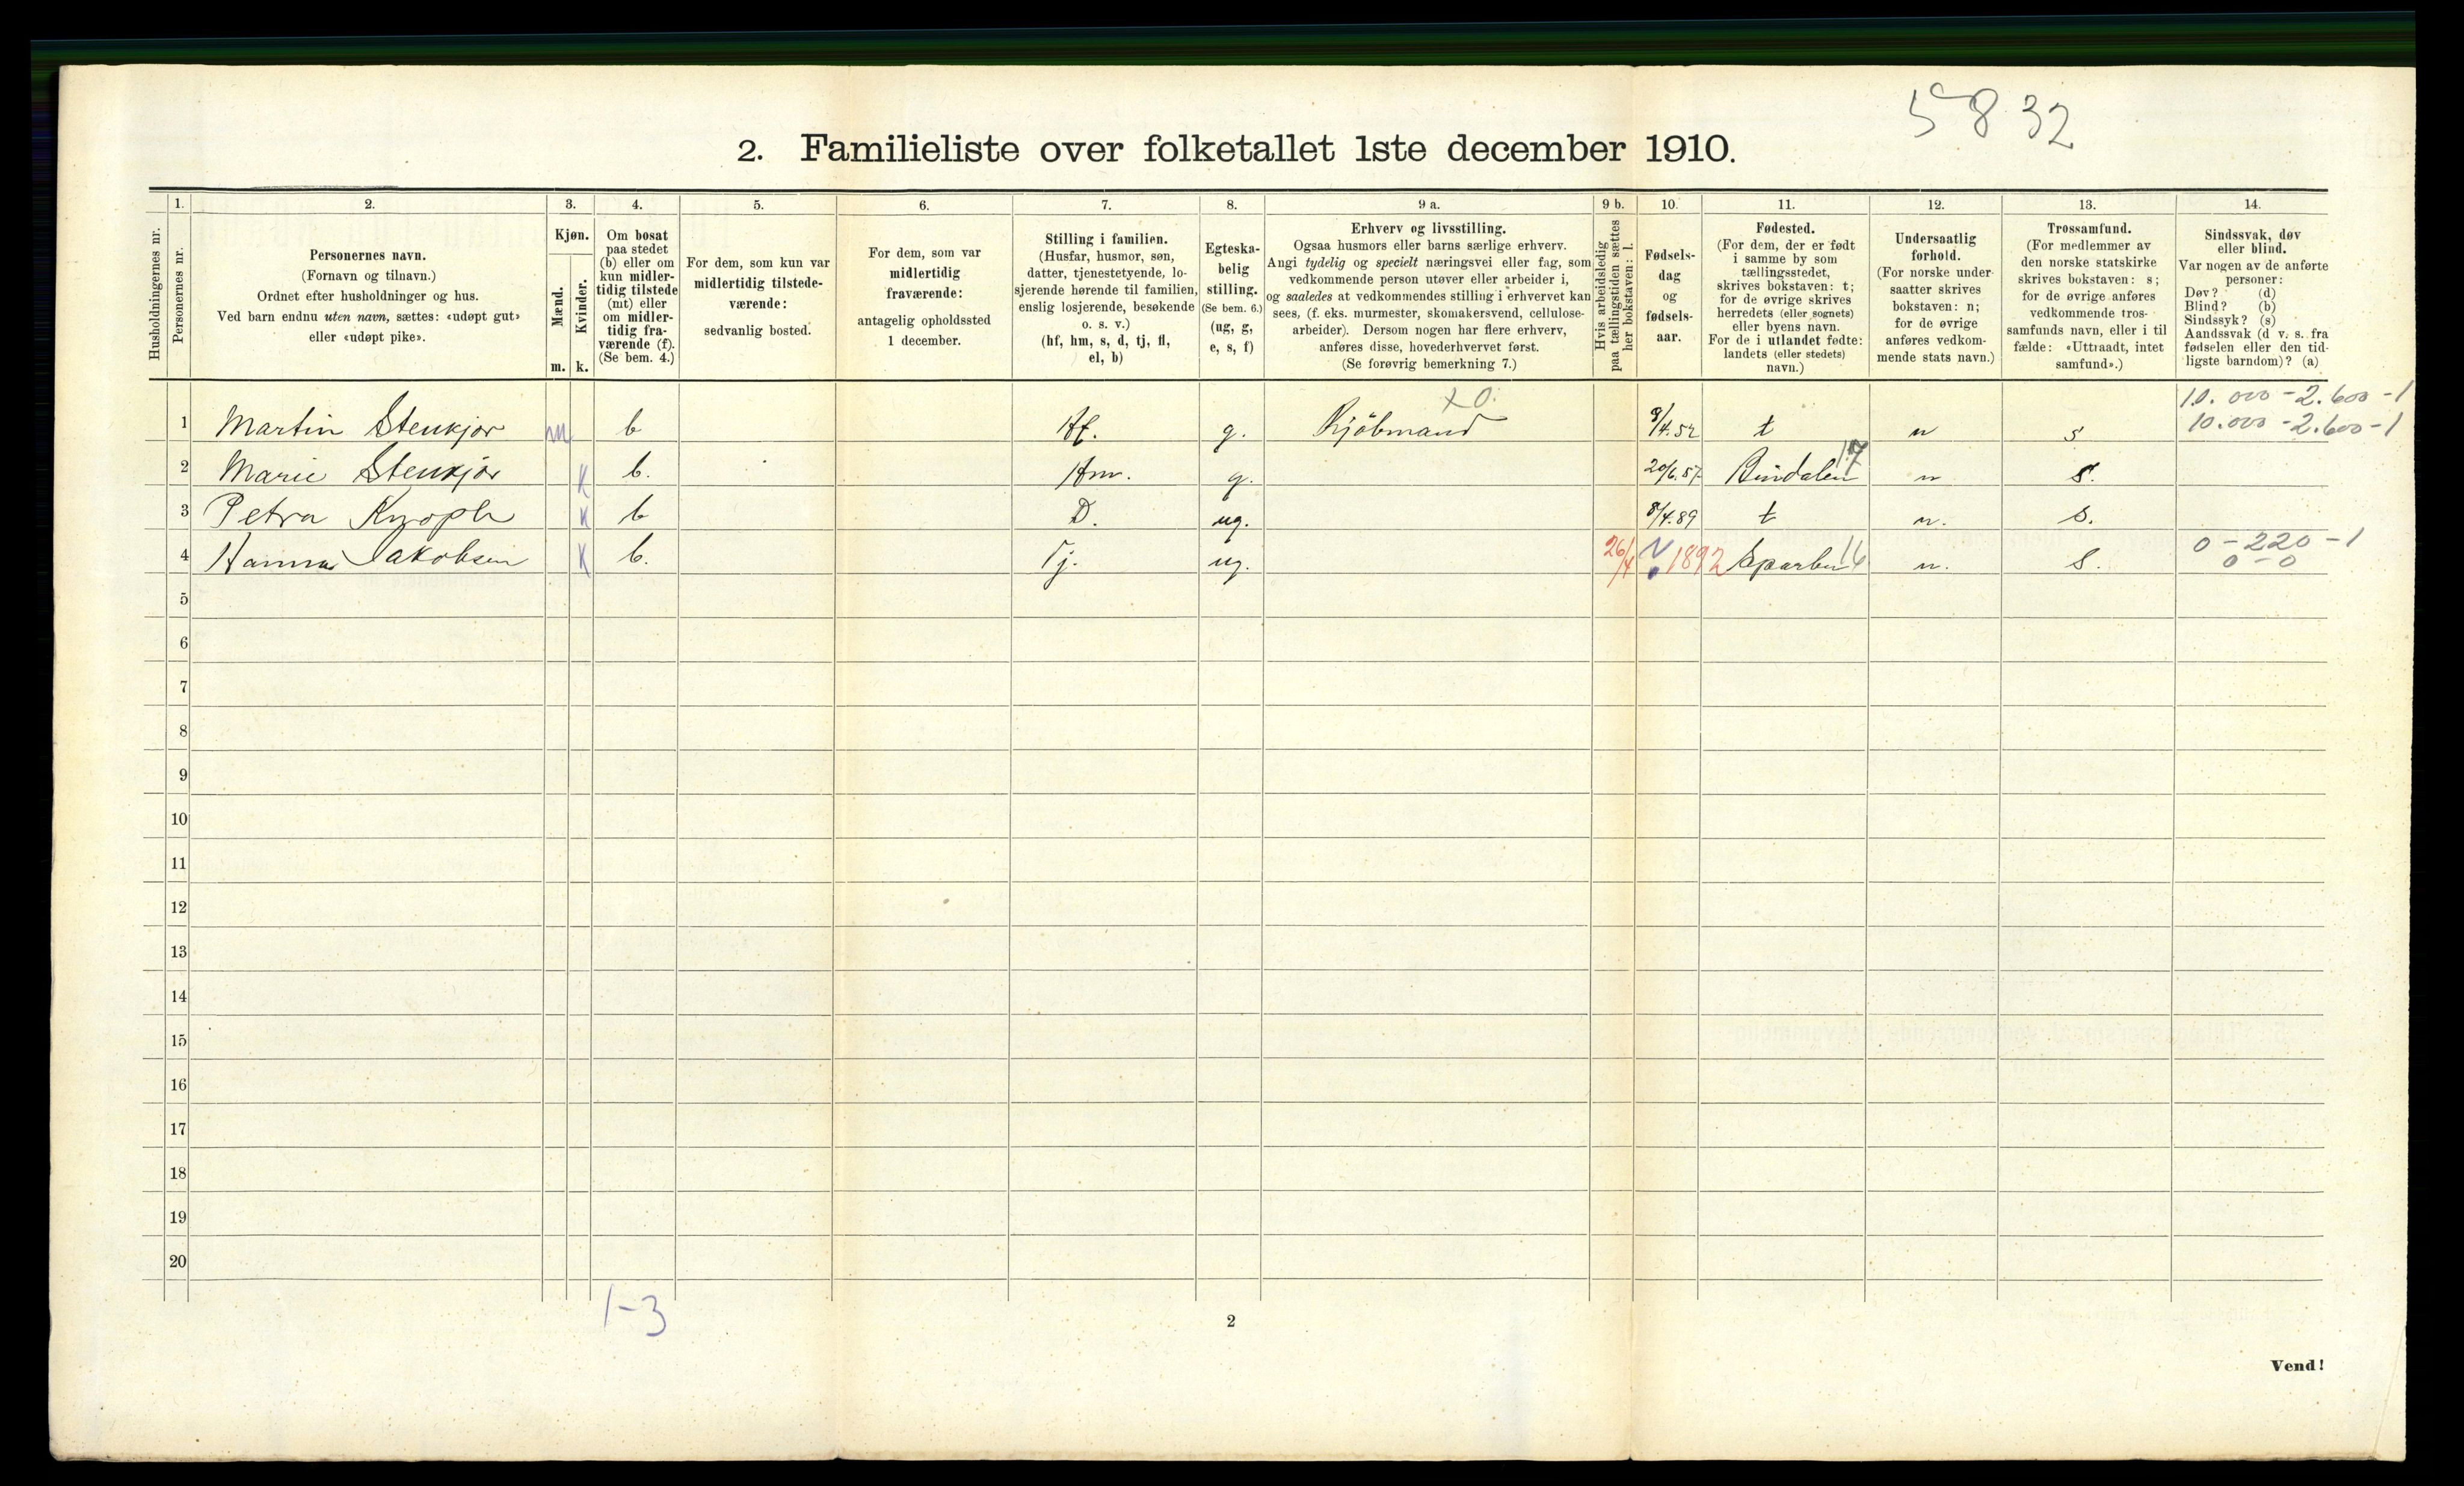 5832
2. Familieliste over folketallet 1ste december 1910.
Husholdningernes nr.
1. Personernes nr.
2. Personernes navn. (Fornavn og tilnavn.) Ordnet efter husholdninger og hus. Ved barn endnu uten navn, sættes: «udøpt gut» eller «udøpt pike».
3. Kjøn. Mænd. m. Kvinder. k.
4. Om bosat paa stedet (b) eller om kun midlertidig tilstede (mt) eller om midlertidig fraværende (f). (Se bem. 4.)
5. For dem, som kun var midlertidig tilstedeværende: sedvanlig bosted.
6. For dem, som var midlertidig fraværende: antagelig opholdssted 1 december.
7. Stilling i familien. (Husfar, husmor, søn, datter, tjenestetyende, losjerende hørende til familien, enslig losjerende, besøkende o. s. v.) (hf, hm, s, d, tj, fl, el, b)
8. Egteskabelig stilling. (Se bem. 6.) (ug, g, e, s, f)
9 a. Erhverv og livsstilling. Ogsaa husmors eller barns særlige erhverv. Angi tydelig og specielt næringsvei eller fag, som vedkommende person utøver eller arbeider i, og saaledes at vedkommendes stilling i erhvervet kan sees, (f. eks. murmester, skomakersvend, cellulosearbeider). Dersom nogen har flere erhverv, anføres disse, hovederhvervet først. (Se forøvrig bemerkning 7.)
9 b. Hvis arbeidsledig paa tællingstiden sættes her bokstaven: l.
10. Fødselsdag og fødselsaar.
11. Fødested. (For dem, der er født i samme by som tællingsstedet, skrives bokstaven: t; for de øvrige skrives herredets (eller sognets) eller byens navn. For de i utlandet fødte: landets (eller stedets) navn.)
12. Undersaatlig forhold. (For norske undersaatter skrives bokstaven: n; for de øvrige anføres vedkommende stats navn.)
13. Trossamfund. (For medlemmer av den norske statskirke skrives bokstaven: s; for de øvrige anføres vedkommende trossamfunds navn, eller i tilfælde: «Uttraadt, intet samfund».)
14. Sindssvak, døv eller blind. Var nogen av de anførte personer: Døv? (d) Blind? (b) Sindssyk? (s) Aandssvak (d. v. s. fra fødselen eller den tidligste barndom)? (a)
x 0. 10.000 - 2.600 - 1
1 Martin Stenkjær m b Hf. g. Kjöbmand 9/4.52 t n s 10.000 - 2.600 - 1
2 Marie Stenkjær K b. Hm. g. 20/6.57 Bindalen 17 n s.
3 Petra Knoph K b D. ug. 8/4.89 t n. s.
4 Hanna Jakobsen K b. Tj. ug. 26/4 1892 Sparbu 16 n. s. 0 - 220 - 1
0 - 0
5
6
7
8
9
10
11
12
13
14
15
16
17
18
19
20
1-3
2
Vend!